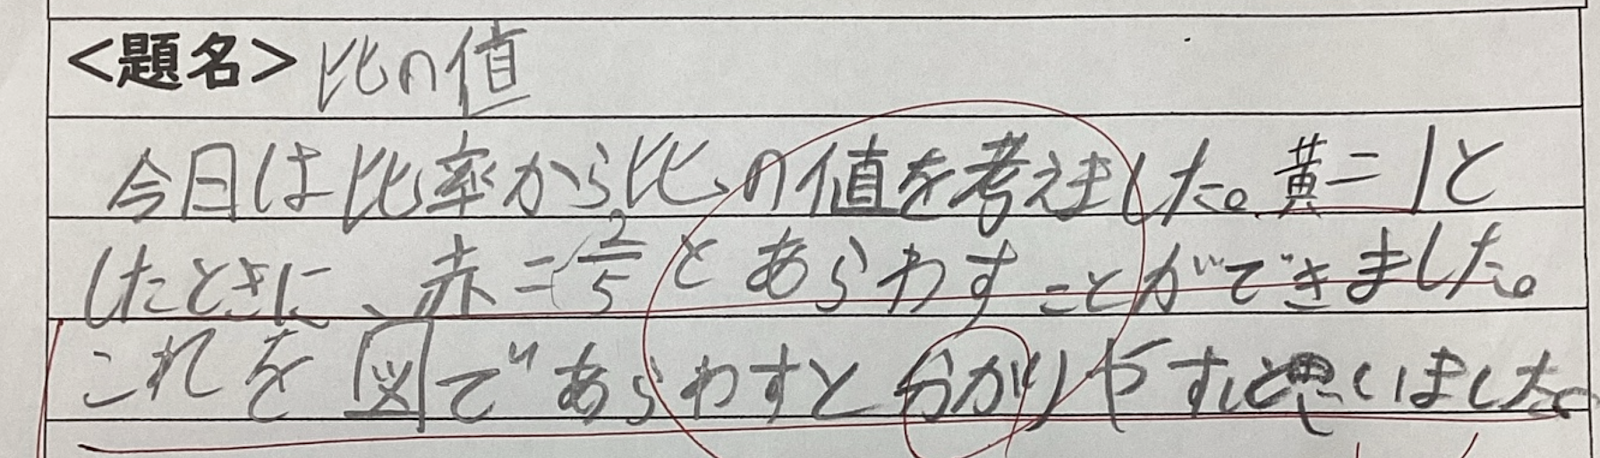 <題名> 比の値
今日は比率から比の値を考えました。黄=1と
したときに、赤=2/5とあらわすことができました。
これを図であらわすと分かりやすいと思いました。